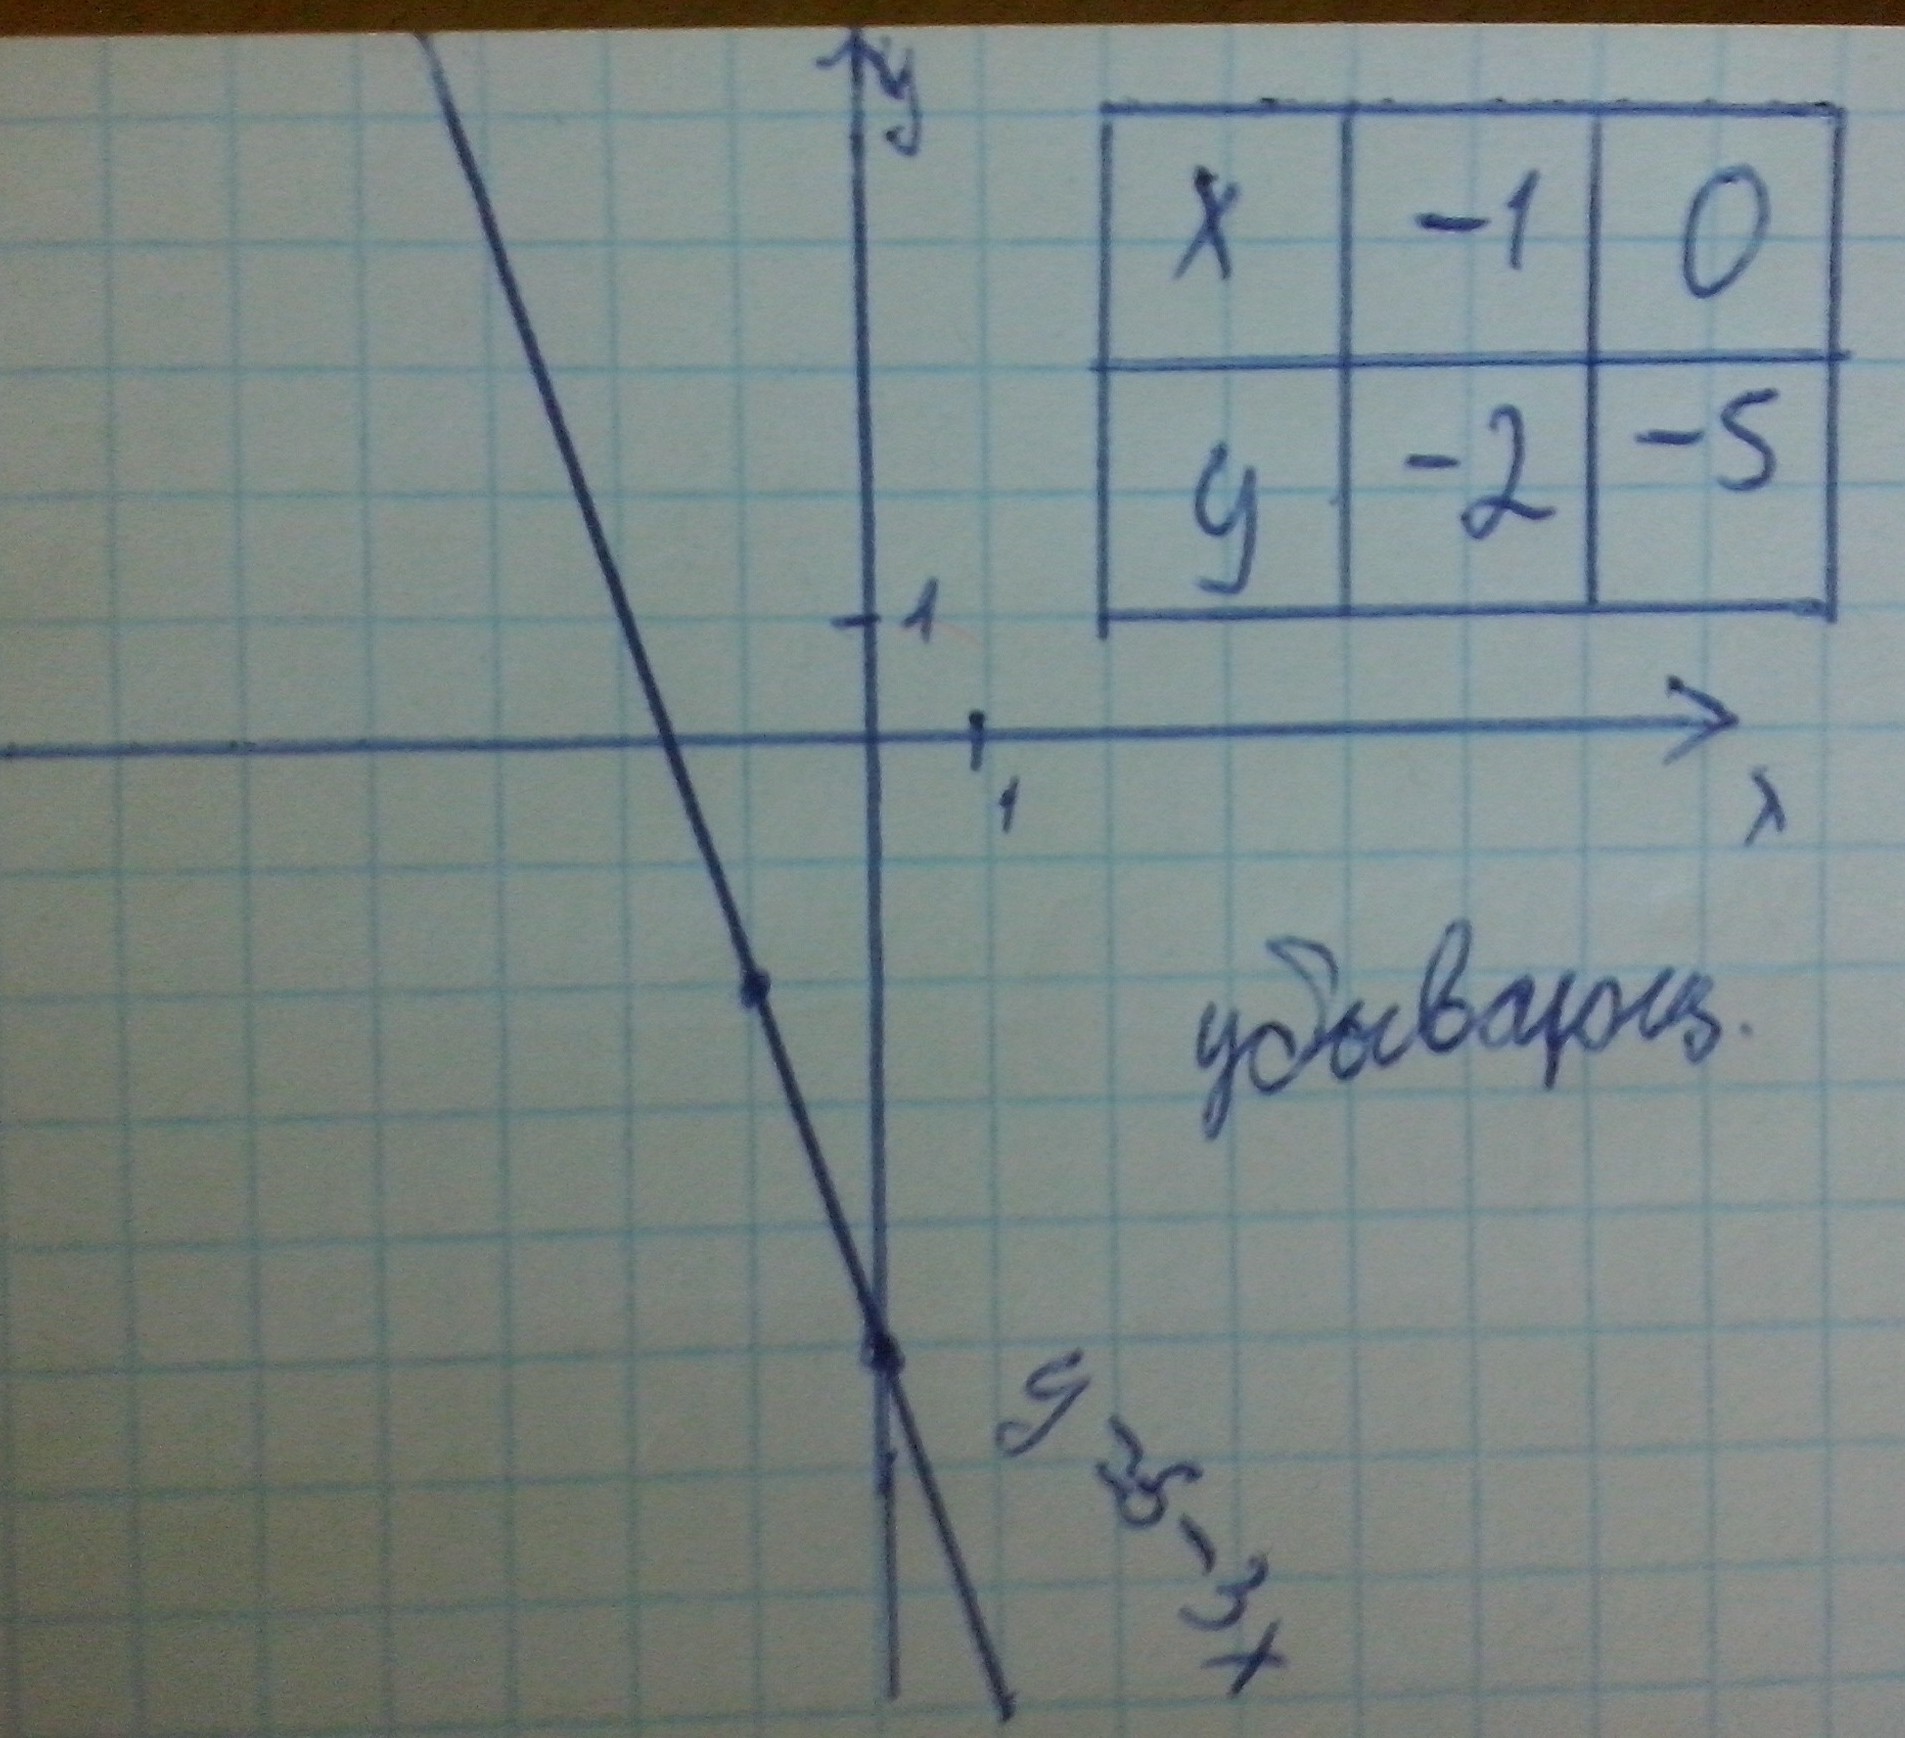 y
x -1 0
y -2 -5
1
1
x
убывающ.
y=-5-3x